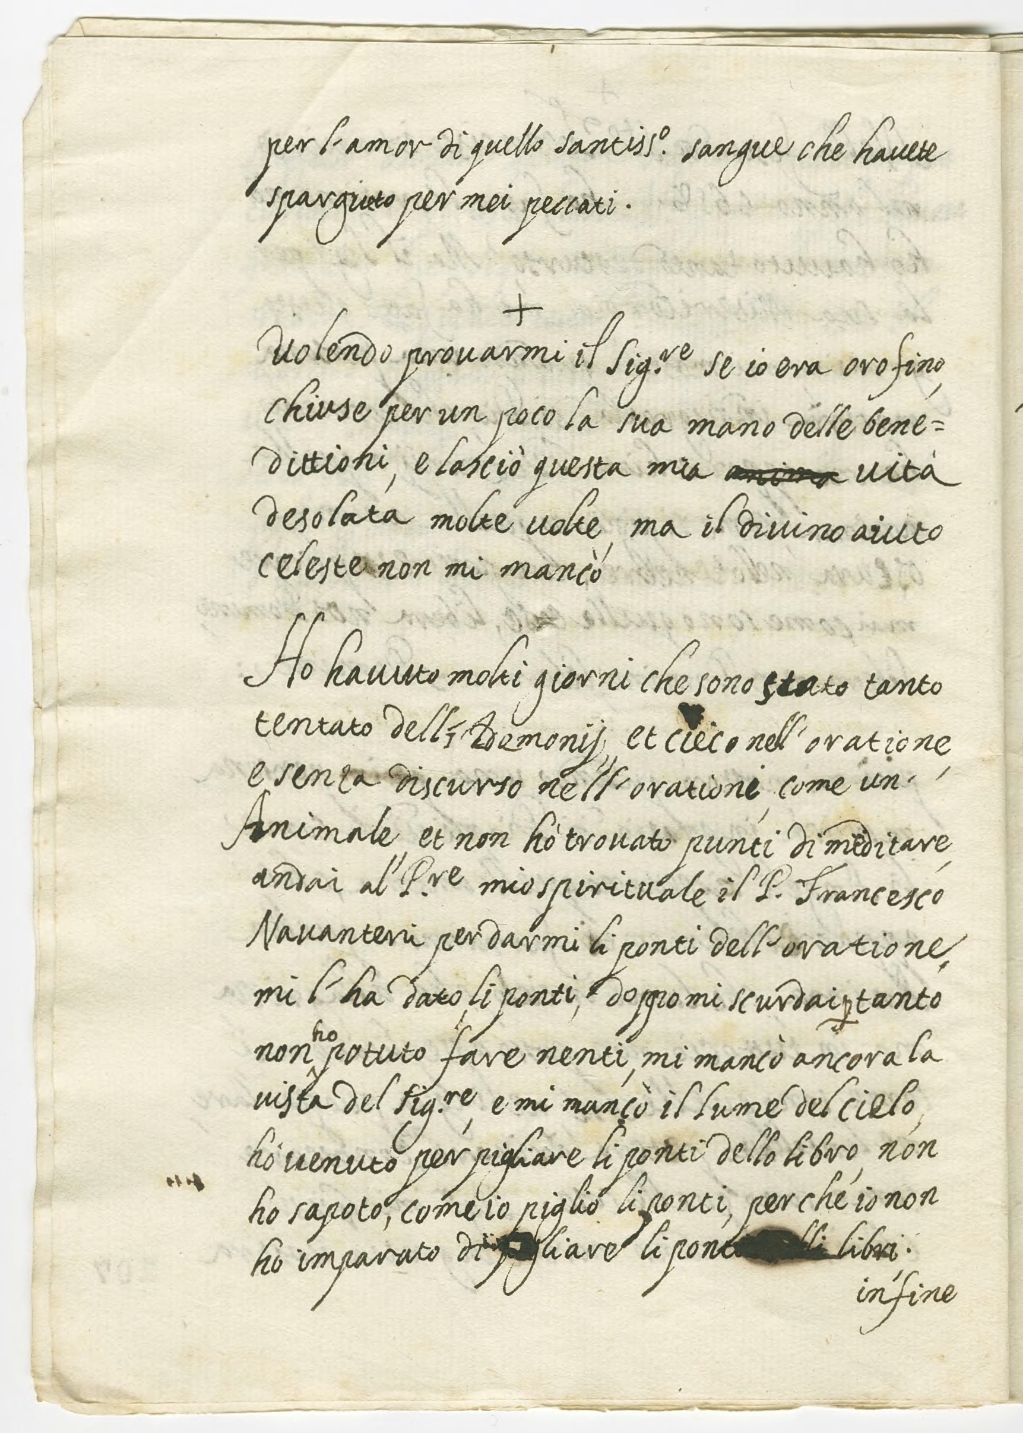 per l'amor di quello santiss.º sangue che havete
spargiuto per mei peccati.
+
Volendo provarmi il Sig.re se io era oro fino,
chiuse per un poco la sua mano delle bene=
dittioni, e lasciò questa mia anima vita
desolata molte volte, ma il divino aiuto
celeste non mi mancò
Ho havuto molti giorni che sono stato tanto
tentato delli Demonij, et cieco nell'oratione,
e senza discurso nell'orationi, come un'
Animale, et non hò trovato punti di meditare,
andai al P.re mio spirituale il P. Francesco
Navanteri per darmi li ponti dell'oratione,
mi l'ha dato li ponti, doppo mi scurdai, tanto
non ho potuto fare nenti, mi mancò ancora la
vista del Sig.re, e mi mancò il lume del cielo,
hò venuto per pigliare li ponti dello libro, non
ho sapoto, come io piglio li ponti, perche io non
ho imparato di pigliare li ponti delli libri.
infine